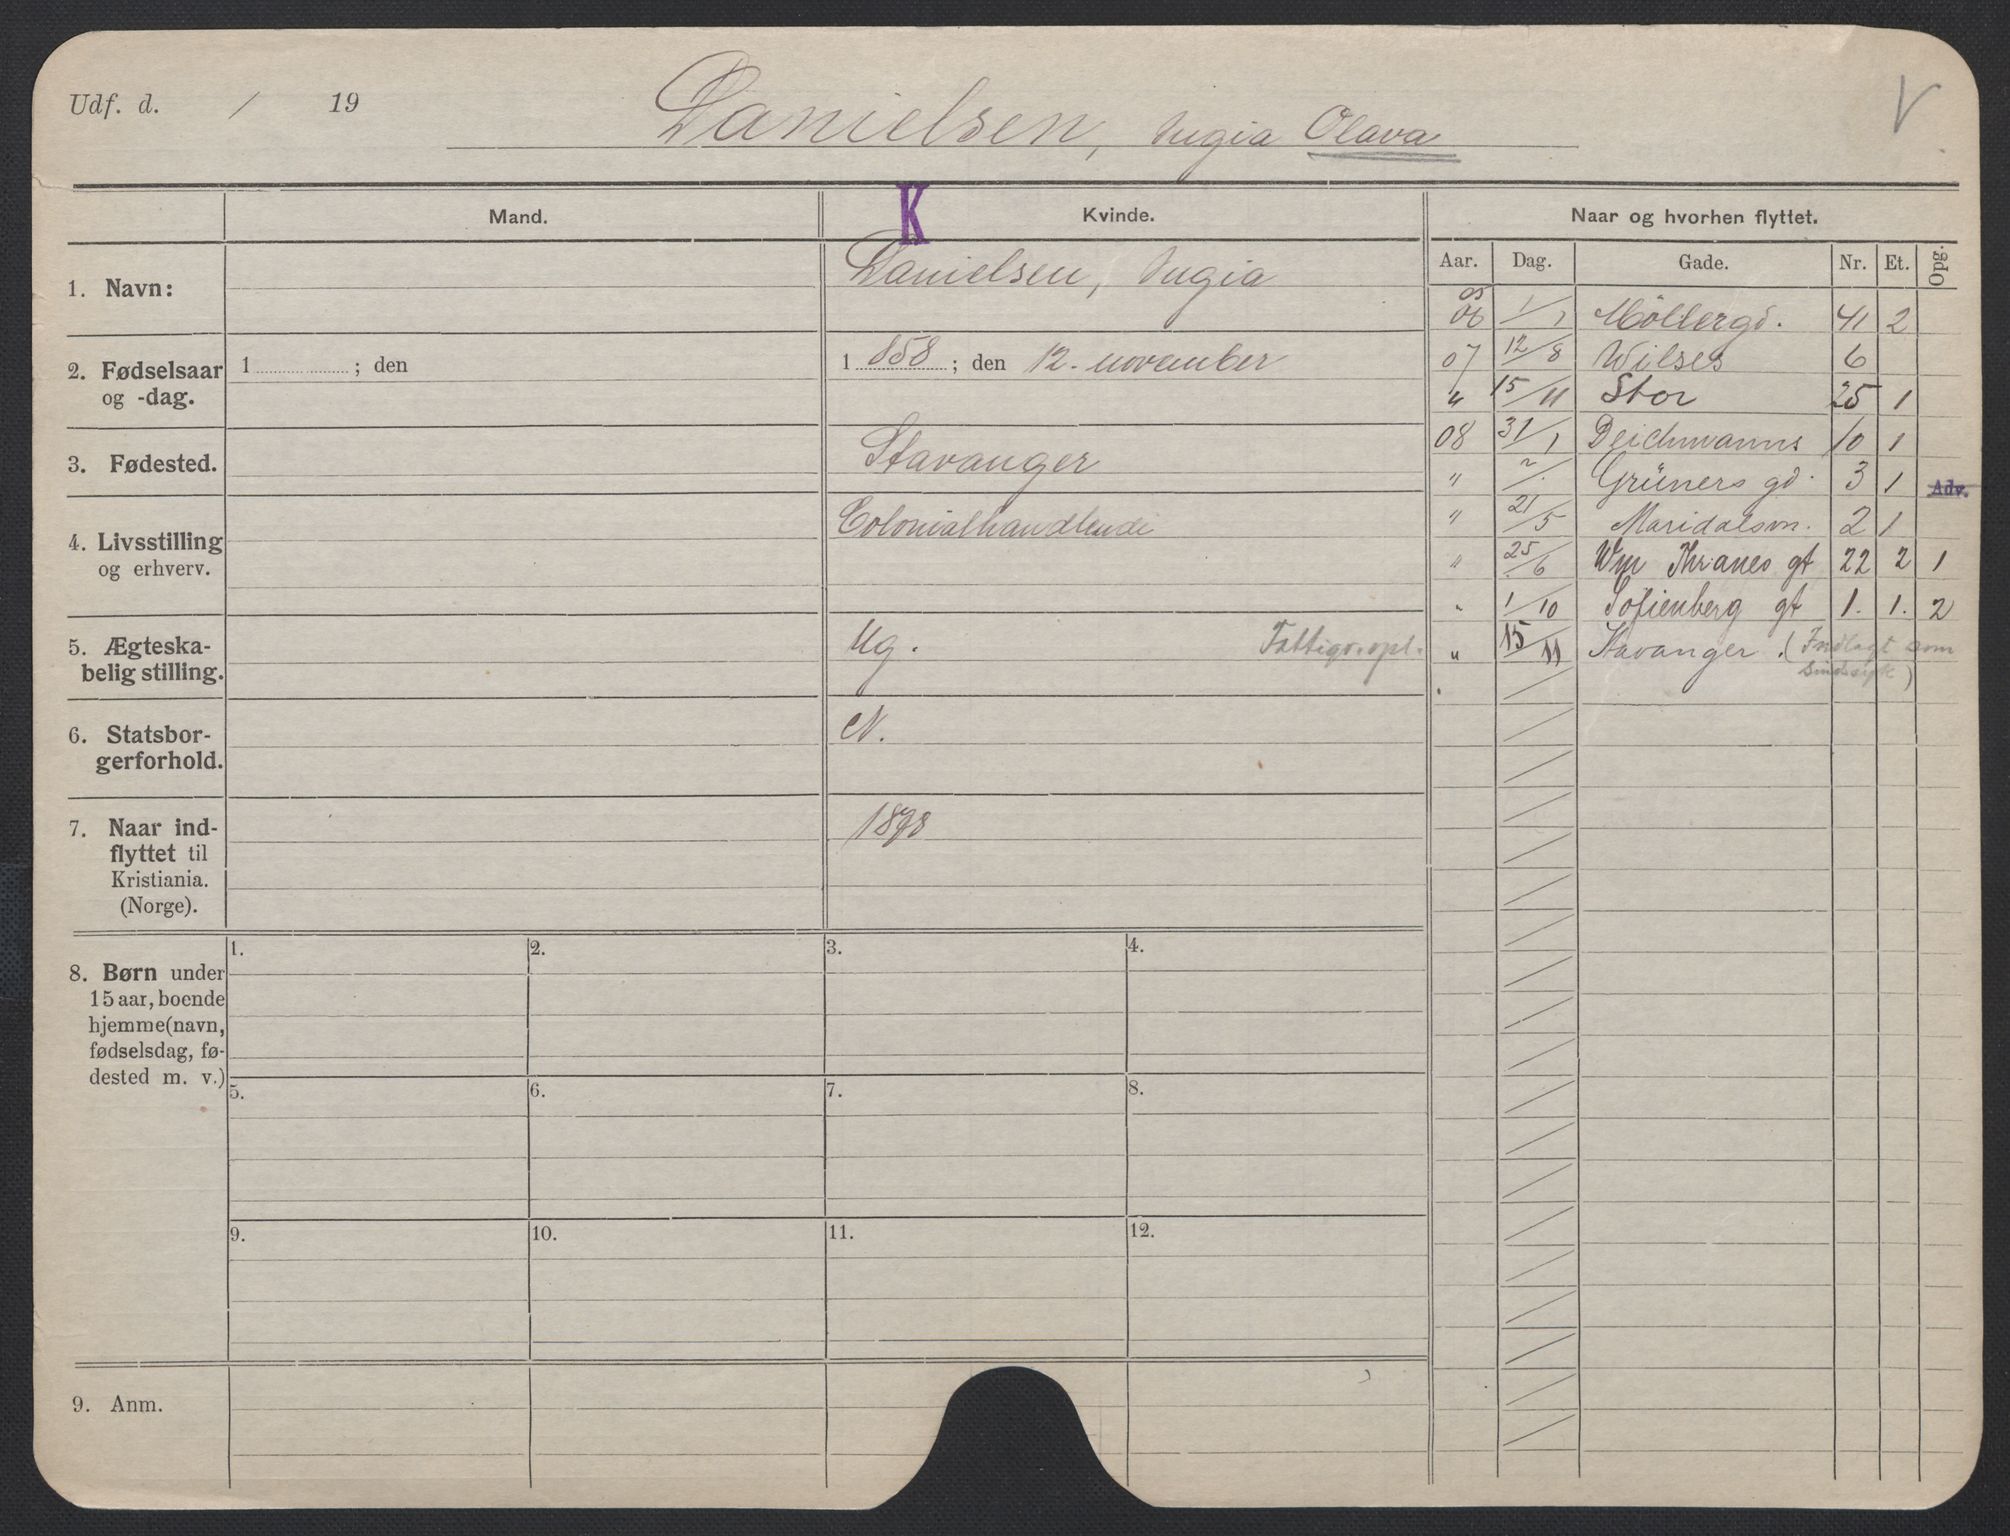 Udf. d. / 19
Danielsen, Olava
V
Mand.
K
Kvinde.
Naar og hvorhen flyttet.
Aar. Dag. Gade. Nr. Et. Opg.
1. Navn:
Danielsen,
2. Fødselsaar
og -dag.
1 ; den
1 858 ; den 12. november
3. Fødested.
Stavanger
4. Livsstilling
og erhverv.
Colonialhandlende
5. Ægteska-
belig stilling.
Ug. Fattigv. opl.
6. Statsbor-
gerforhold.
N.
7. Naar ind-
flyttet til
Kristiania.
(Norge).
1898
05
06 1/1 Möllergd. 41 2
07 12/8 Wilses 6
" 15/11 Stor 25 1
08 31/1 Deichmanns 10 1
" ?/. Grüners gd. 3 1 Adv.
" 21/5 Maridalsvn. 2 1
" 25/6 Wm Thranes gt 22 2 1
" 1/10 Sofienberg gt 1. 1. 2
" 15/11 Stavanger. (Indlagt som
sindssyk)
8. Børn under
15 aar, boende
hjemme (navn,
fødselsdag, fø-
dested m. v.)
1. 2. 3. 4.
5. 6. 7. 8.
9. 10. 11. 12.
9. Anm.